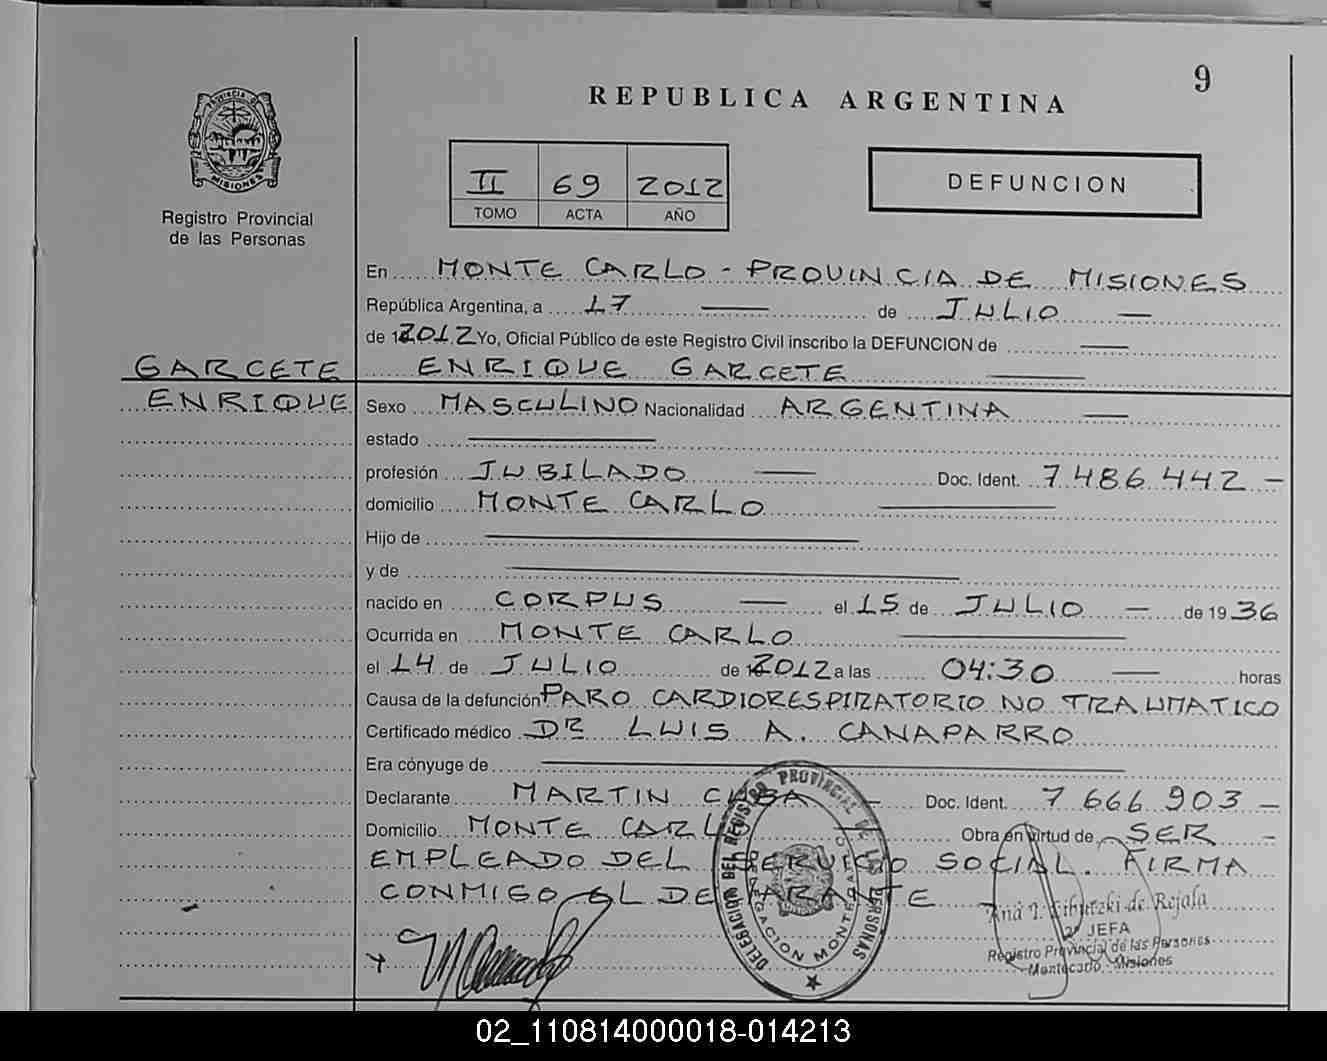 9
REPUBLICA ARGENTINA
PROVINCIA DE
MISIONES
Registro Provincial
de las Personas
II 69 2012
TOMO ACTA AÑO
DEFUNCION
En MONTE CARLO - PROVINCIA DE MISIONES
República Argentina, a 17 de JULIO
de 2012 Yo, Oficial Público de este Registro Civil inscribo la DEFUNCION de
GARCETE ENRIQUE GARCETE
ENRIQUE Sexo MASCULINO Nacionalidad ARGENTINA
estado
profesión JUBILADO Doc. Ident. 7 486 442 -
domicilio MONTE CARLO
Hijo de
y de
nacido en CORPUS el 15 de JULIO de 1936
Ocurrida en MONTE CARLO
el 14 de JULIO de 2012 a las 04:30 horas
Causa de la defunción PARO CARDIORESPIRATORIO NO TRAUMATICO
Certificado médico DR LUIS A. CANAPARRO
Era cónyuge de
Declarante MARTIN Doc. Ident. 7 666 903 -
Domicilio MONTE CARLO Obra en virtud de SER -
EMPLEADO DEL SERVICIO SOCIAL. FIRMA
CONMIGO EL DECLARANTE
DELEGACION DEL REGISTRO PROVINCIAL DE LAS PERSONAS
DELEGACION MONTECARLO
Ana I. de Rejala
2ª JEFA
Registro Provincial de las Personas
Montecarlo - Misiones
02_110814000018-014213